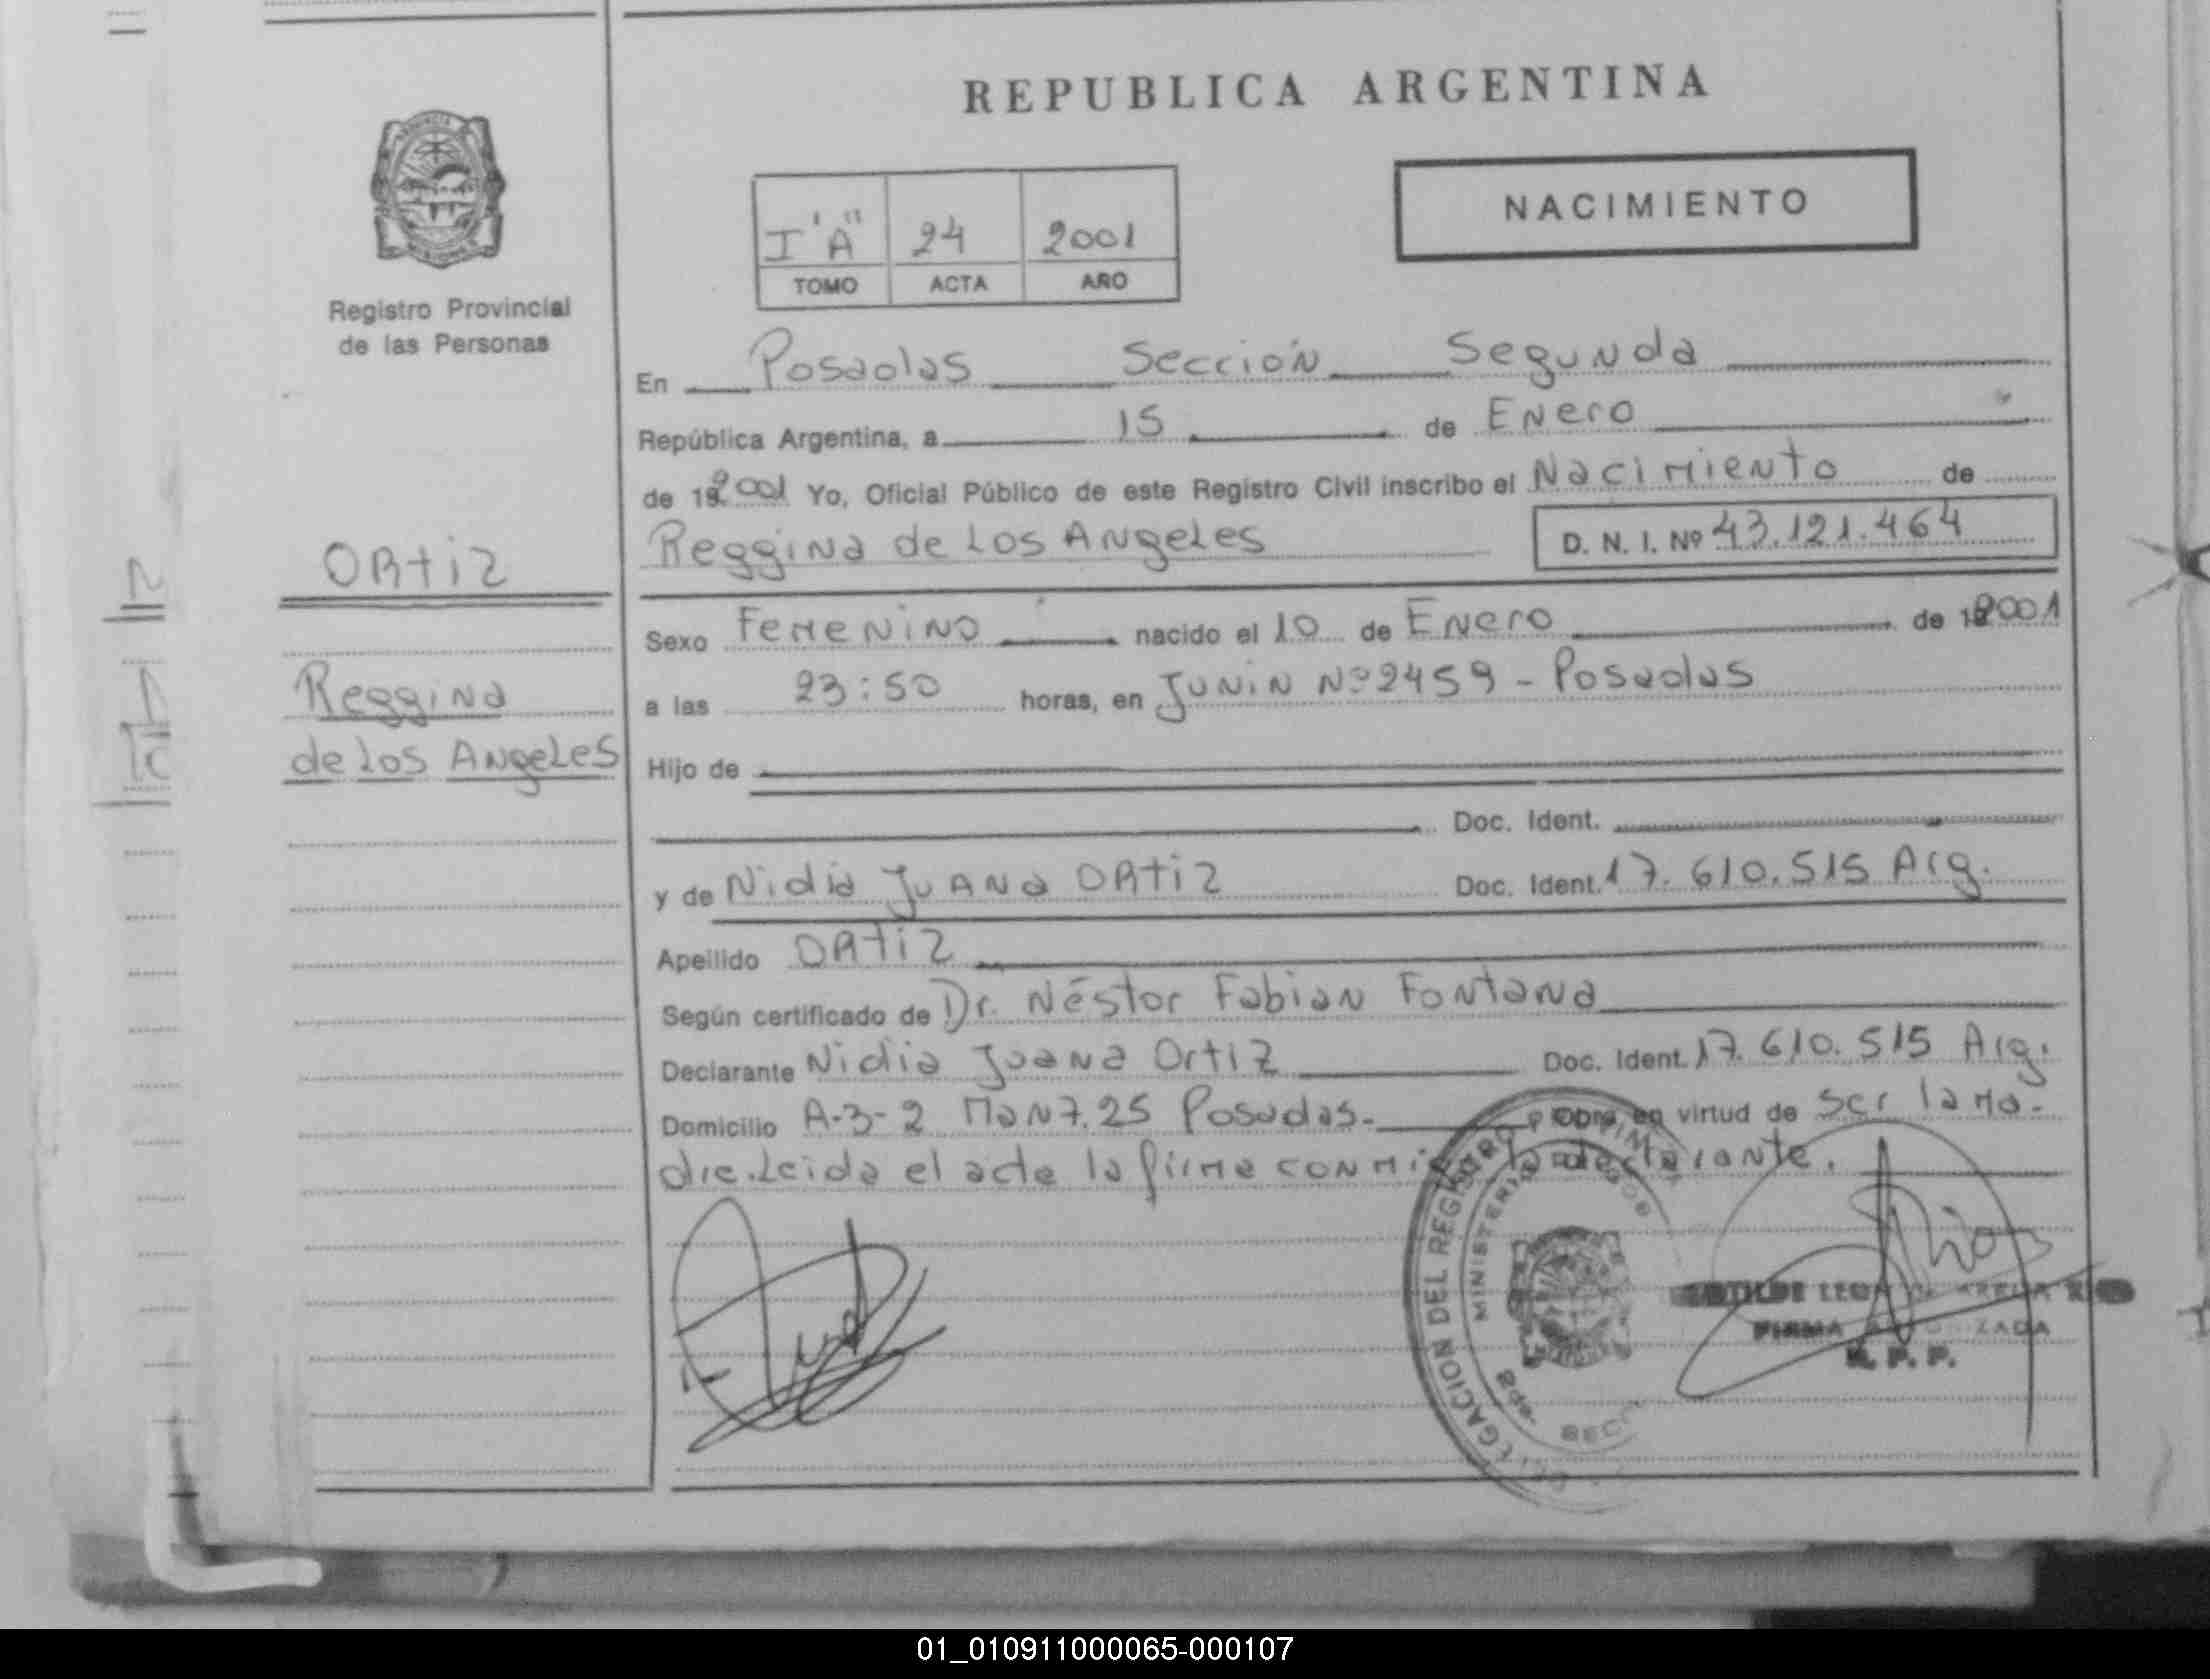 REPUBLICA ARGENTINA
NACIMIENTO
I "A" 24 2001
TOMO ACTA AÑO
Registro Provincial
de las Personas
En Posadas Sección Segunda
República Argentina, a 15 de Enero
de 192001 Yo, Oficial Público de este Registro Civil inscribo el Nacimiento de
Reggina de Los Angeles D. N. I. Nº 43.121.464
ORtiz
Reggina
de Los Angeles
Sexo Femenino nacido el 10 de Enero de 192001
a las 23:50 horas, en Junin Nº 2459 - Posadas
Hijo de
Doc. Ident.
y de Nidia Juana ORtiz Doc. Ident. 17.610.515 Arg.
Apellido ORtiz
Según certificado de Dr. Néstor Fabian Fontana
Declarante Nidia Juana Ortiz Doc. Ident. 17.610.515 Arg.
Domicilio A-3-2 Manz. 25 Posadas.- en virtud de ser la ma-
dre. Leida el acta la firma conmigo la declarante.
DELEGACION DEL REGISTRO
MINISTERIO
FIRMA AUTORIZADA
R. P. P.
01_010911000065-000107